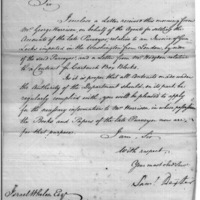 Sir
I enclose a Letter received this morning from
Mr George Harrison on behalf of the Agents for settling the
Accounts of the late Purveyor relative to an Invoice of
Locks imported in the Washington from London, by
the said Purveyor and a Letter from Mr
relative to
a Contract for Cartouch Box Blocks.
It is proper that all Contracts made under
the Authority of the Department should be
regularly complied with, you will be pleased to apply
for the necessary information to Mr Harrison in whose
the Books and Papers of the late Purveyor now are
for that purpose.
I am Sir
With respect
Your most obedient
Israel Whelen Esqr